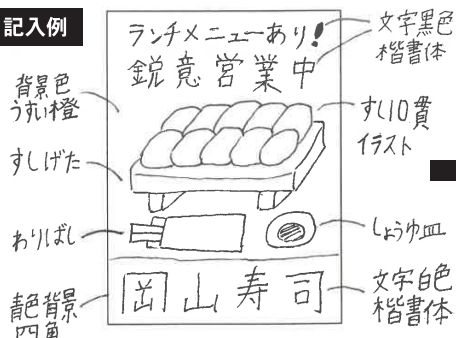 記入例
ランチメニューあり!
鋭意営業中
文字黒色
楷書体
背景色
うすい橙
すし10貫
イラスト
すしげた
わりばし
しょうゆ皿
岡山寿司
青色背景
四角
文字白色
楷書体